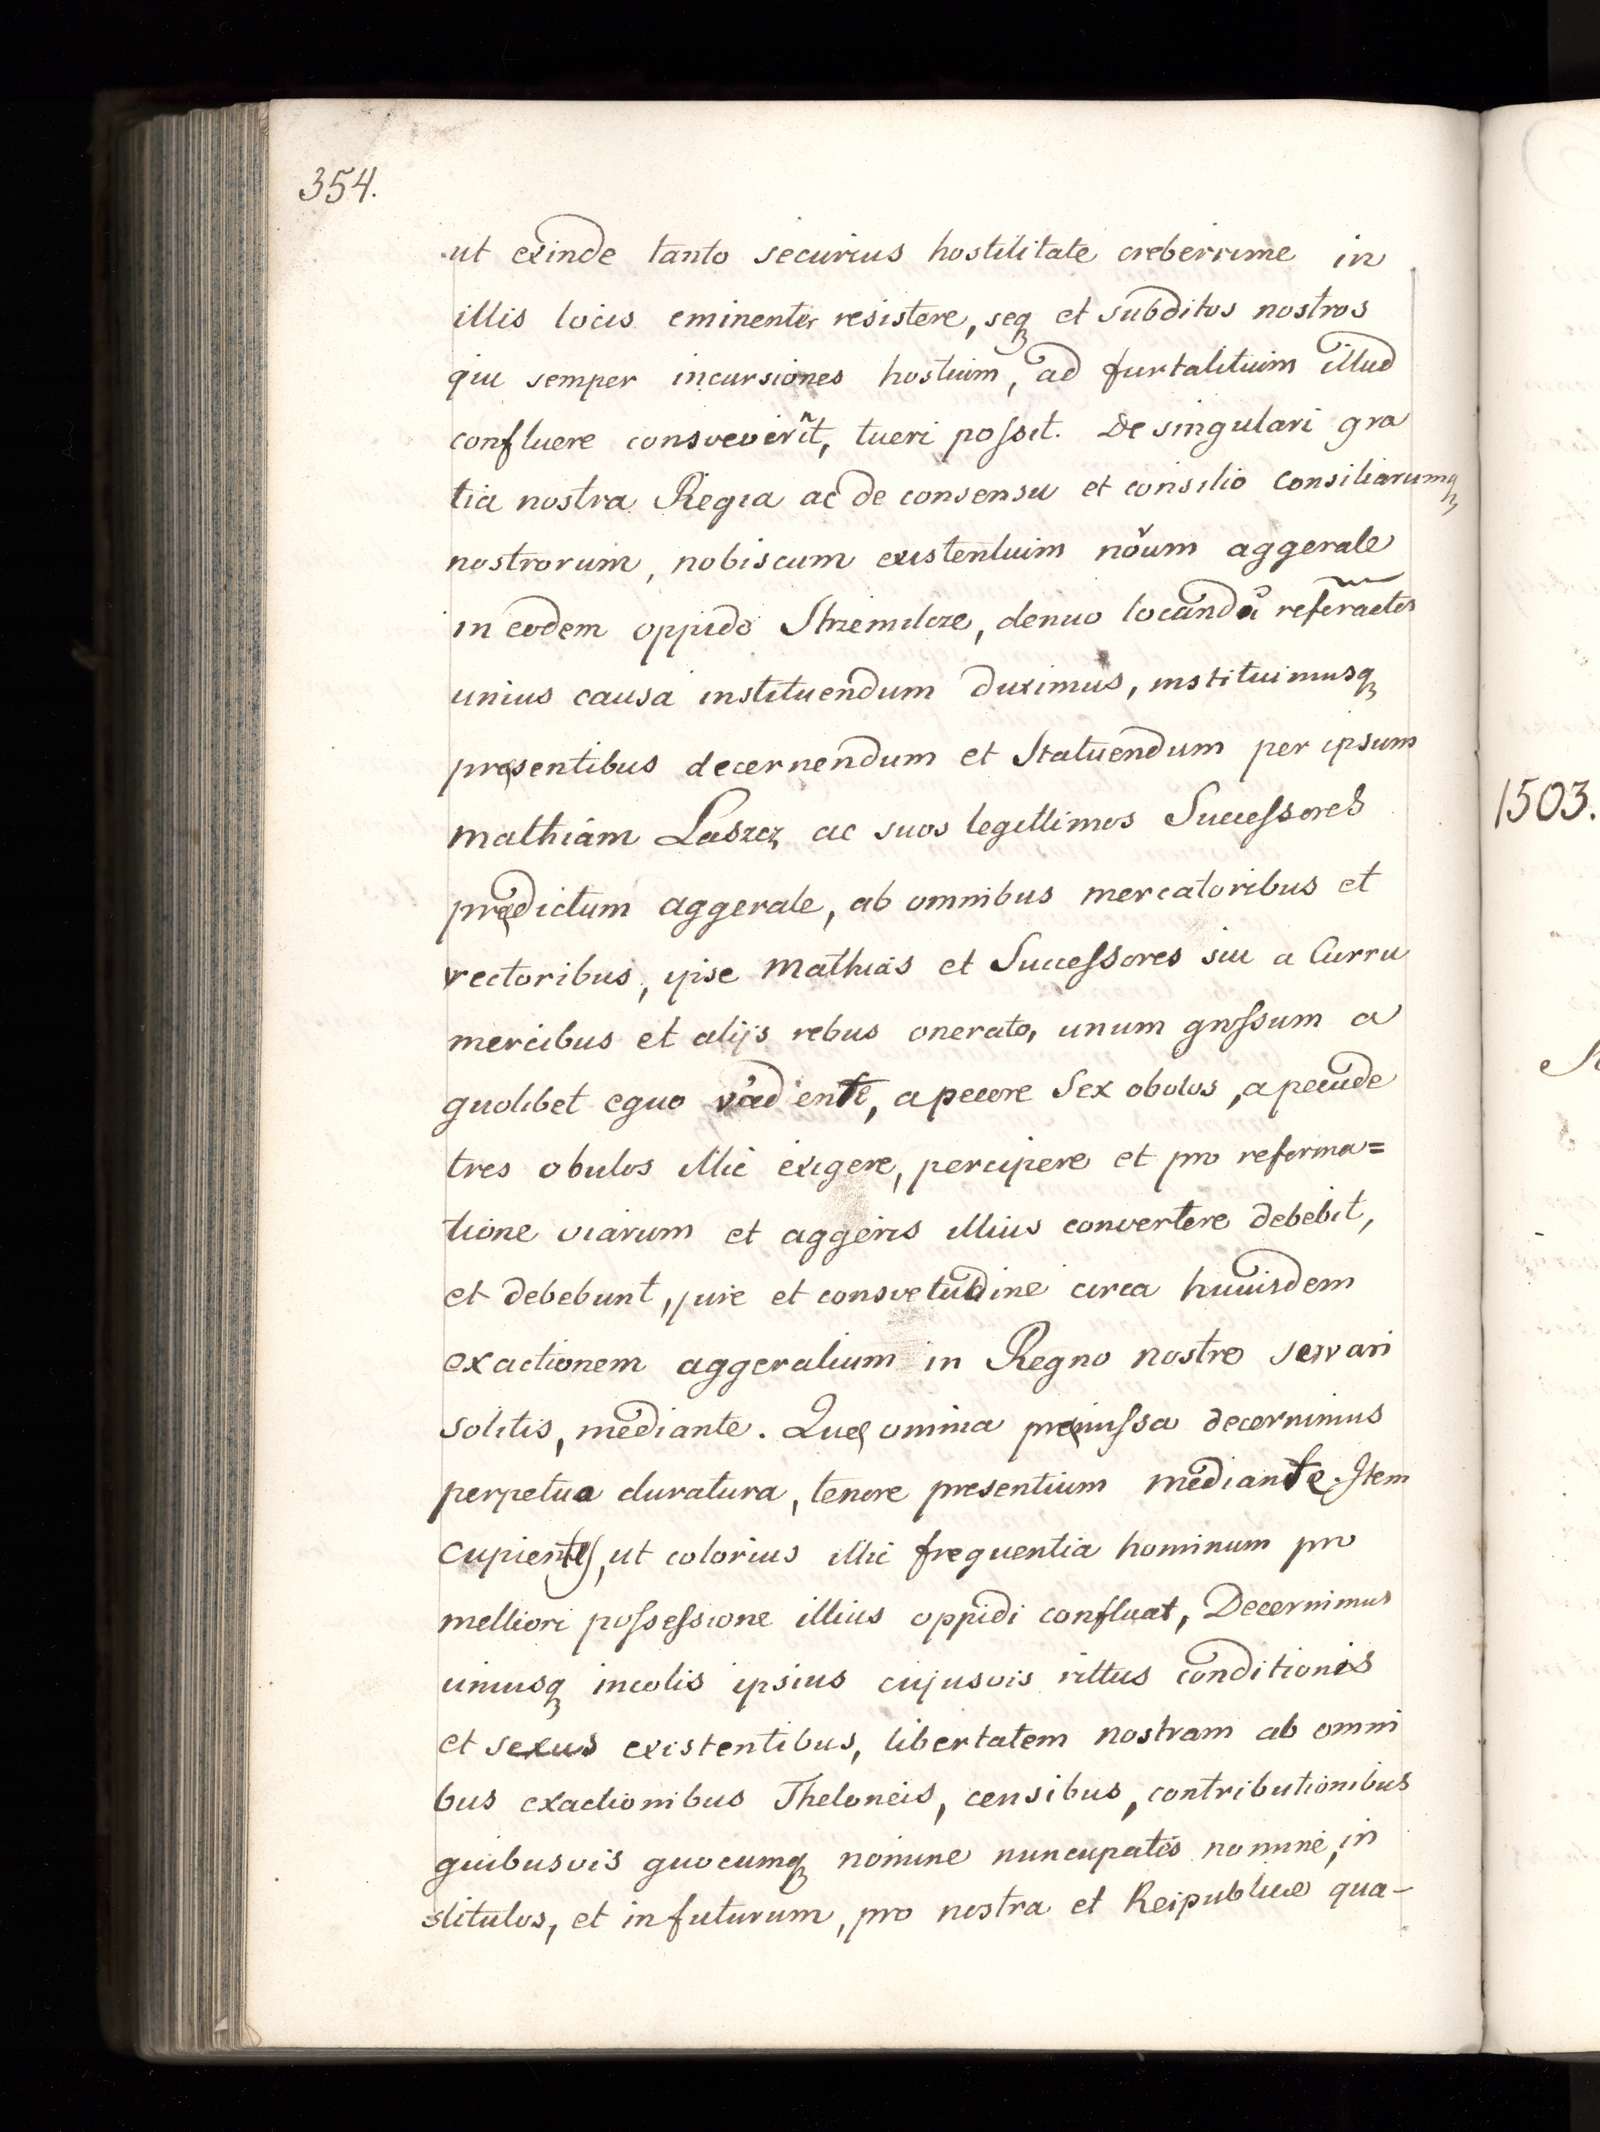 354.
ut exinde tanto securius hostilitate creberrime in
illis locis eminenter resistere, seq et subditos nostros
qui semper incursiones hostium, ad furtalitium illud
confluere consveverñt, tueri possit. De singulari gra
tia nostra Regia ac de consensu et consilio Consiliarumq
nostrorum, nobiscum existentium novum aggerale
in eodem oppido Strzemilcze, denuo locando
unius causa instituendum duximus, instituimusq
presentibus decernendum et Statuendum per ipsum
Mathiam Laszcz ac suos legittimos Successores
prædictum aggerale, ab omnibus mercatoribus et
vectoribus, ipse Mathias et Successores sui a Curru
mercibus et alijs rebus onerato, unum grossum a
quolibet equo vadente, a pecore Sex obolos, a pecude
tres obulos illic exigere, percipere et pro reforma=
tione viarum et aggeris illius convertere debebit,
et debebunt, jure et consvetudine circa huiusdem
exactionem aggeralium in Regno nostro servari
solitis, mediante. Quæ omnia præmissa decernimus
perpetua duratura, tenore presentium mediante. Item
Cupientes, ut colorius illic frequentia hominum pro
melliori possessione illius oppidi confluat, Decernimus
uniusq incolis ipsius cujusvis rittus conditionis
et sexus existentibus, libertatem nostram ab omni
bus exactionibus Theloneis, censibus, contributionibus
quibusvis quocumq nomine nuncupatis nomine, in
stitulos, et in futurum, pro nostra et Reipublicæ qua-
1503.